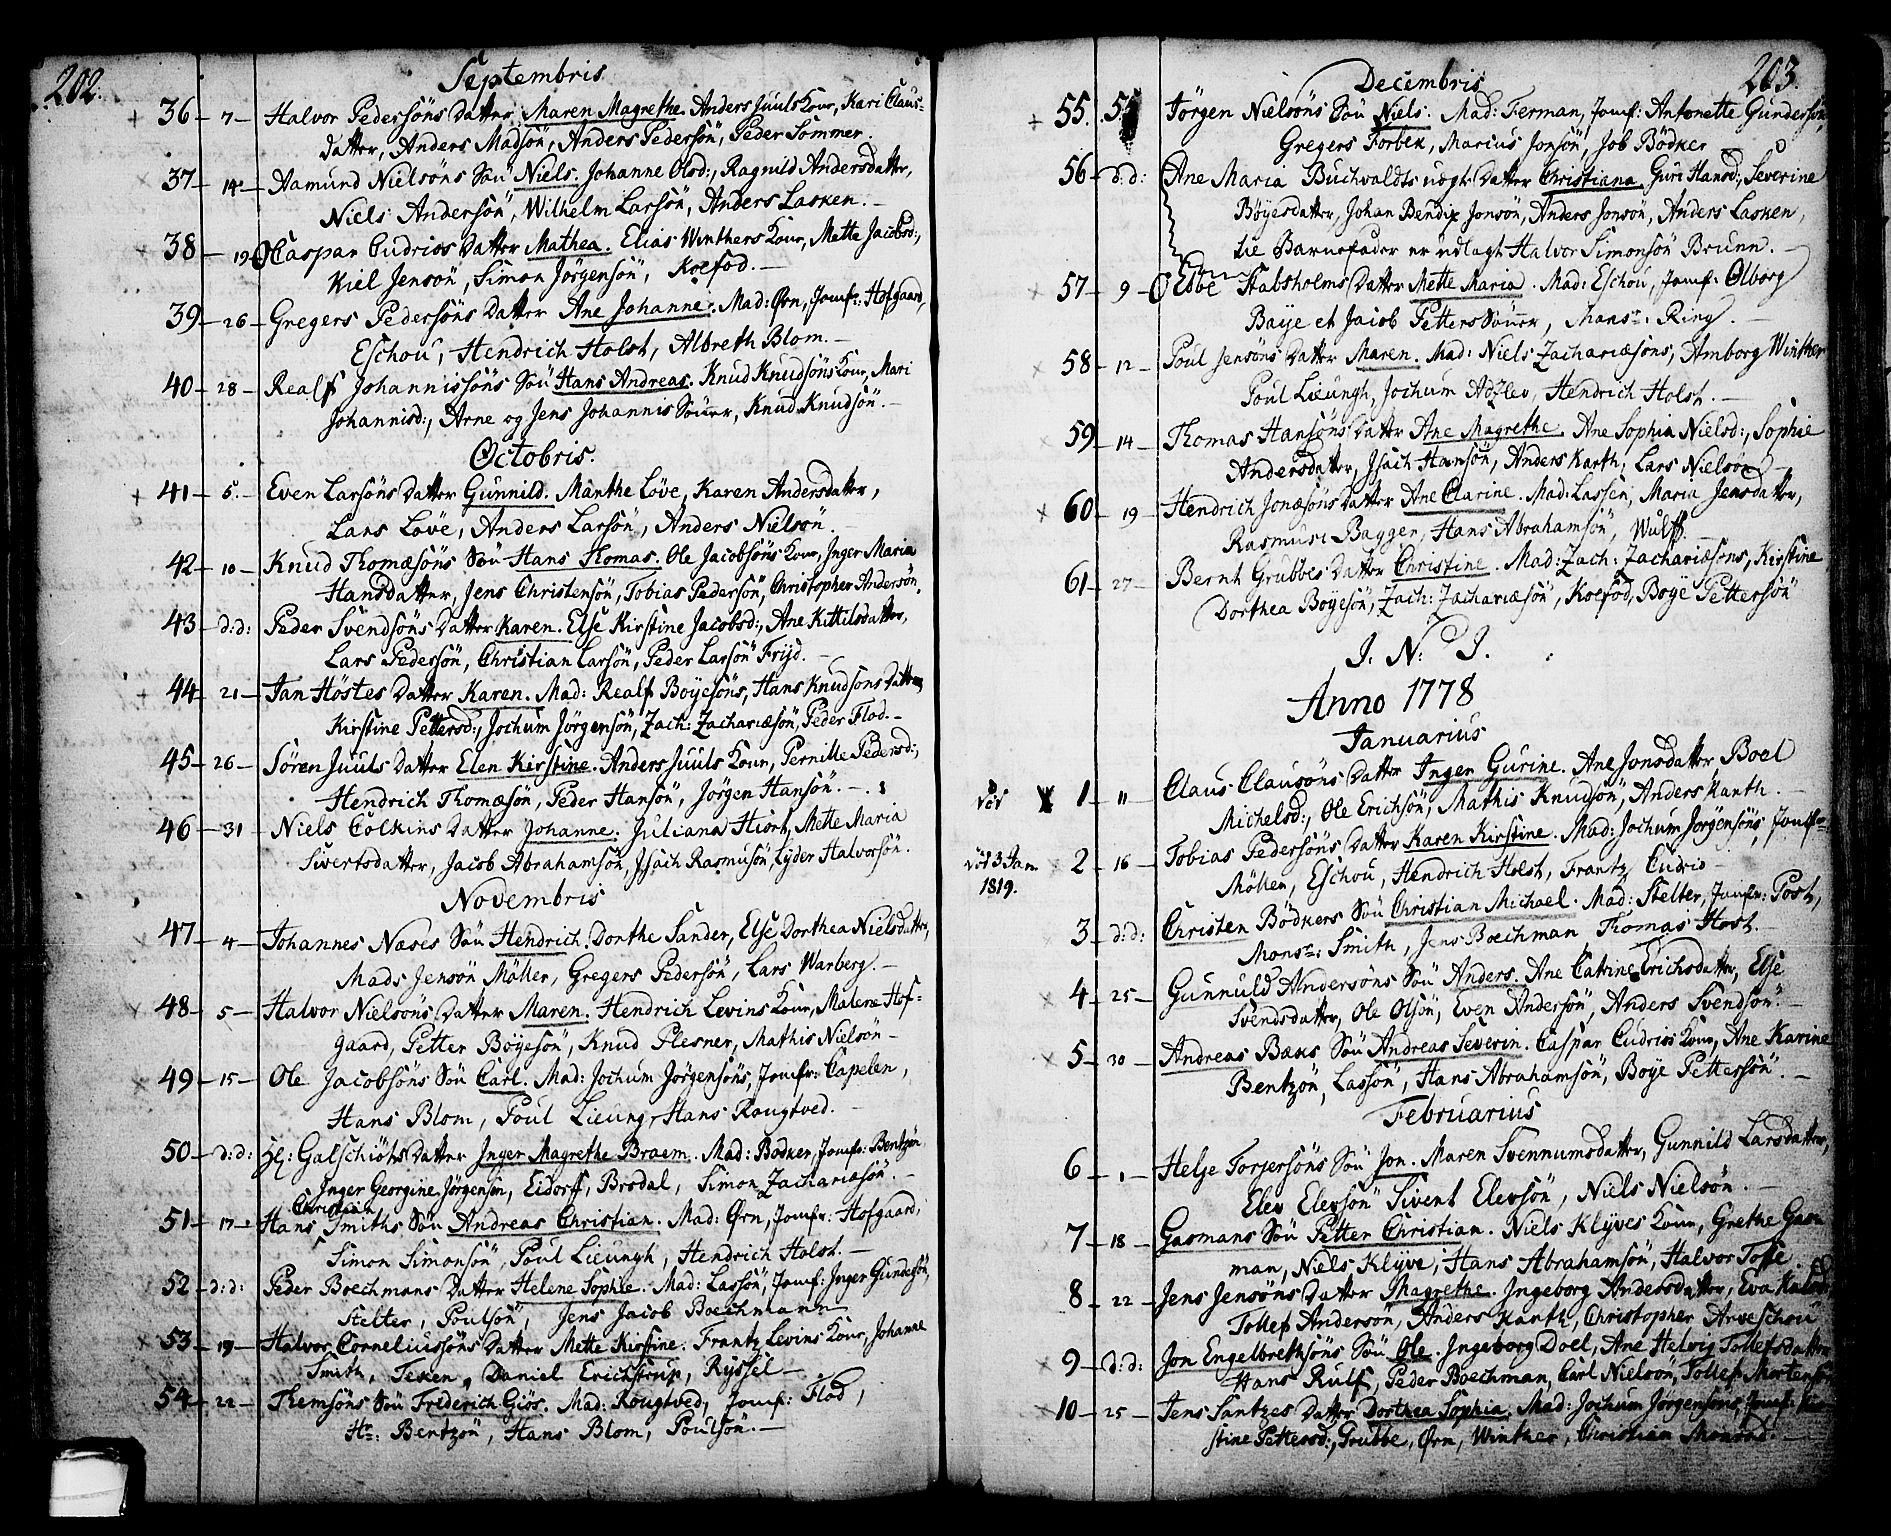 202.
Septembris
36 - 7 - Halvor Pedersöns Datter Maren Magrethe. Anders Juuls Kone, Kari Claus-
datter, Anders Madsön, Anders Pedersön, Peder Sommer.
37 - 14 - Aamund Nielsöns Sön Niels. Johanne Olsd:, Ragnild Andersdatter,
Niels Andersön, Wilhelm Larsön, Anders Lasken.
38 - 19 - Caspar Cudrios Datter Mathea. Elias Winthers Kone, Mette Jacobsd:,
Kiel Jensön, Simon Jörgensön, Koefod.
39 - 26 - Gregers Pedersöns Datter Ane Johanne. Mad: Ørn, Jomfr: Hofgaard,
Eschou, Hendrich Holst, Albreth Blom.
40 - 28 - Realf Johannissöns Sön Hans Andreas. Knud Knudsöns Kone, Mari
Johannisd:, Arne og Jens Johannis Sönner, Knud Knudsön.
Octobris.
41 - 5 - Even Larsöns Datter Gunnild. Manthe Löve, Karen Andersdatter,
Lars Löve, Anders Larsön, Anders Nielsön.
42 - 10 - Knud Thomæsöns Sön Hans Thomas. Ole Jacobsöns Kone, Inger Maria
Hansdatter, Jens Christensön, Tobias Pedersön, Christopher Andersön.
43 - d:d: Peder Svendsöns Datter Karen. Else Kirstine Jacobsd:, Ane Kittilsdatter,
Lars Pedersön, Christian Larsön, Peder Larsön Frijd.
44 - 21 - Jan Höstes Datter Karen. Mad: Realf Boyesöns, Hans Knudsons Datter
Kirstine Pettersd:, Jochum Jörgensön, Zach: Zachariæsön, Peder Flod.
45 - 26 - Sören Juuls Datter Elen Kirstine. Anders Juuls Kone, Pernille Pedersd:,
Hendrich Thomæsön, Peder Hansön, Jörgen Hansön.
46 - 31 Niels Colkins Datter Johanne. Juliana Hiort, Mette Maria
Sivertsdatter, Jacob Abrahamsön, Isach Rasmusön, Lyder Halvorsön.
Novembris
47 - 4 - Johannes Næses Sön Hendrich. Dorthe Sander, Else Dorthea Nielsdatter,
Mads Jensön Möller, Gregers Pedersön, Lars Warberg.
48 - 5 - Halvor Nielsöns Datter Maren. Hendrich Levins Kone, Malene Hof-
gaard, Petter Böyesön, Knud Plesner, Mathis Nielsön
49 - 15 - Ole Jacobsöns Sön Carl. Mad: Jochum Jörgensöns, Jomfr: Capelen,
Hans Blom, Poul Lieung, Hans Rougtved.
50 - d:d: Galschiöts Datter Inger Magrethe Braem. Mad: Bodker, Jomfr: Bentzön
Inger Georgine Jörgensön, Eidorf, Brodal, Simon Zachariæsön.
Christian
51 - 17 - Hans Smiths Sön Andreas Christian. Mad: Ørn, Jomfr: Hofgaard,
Simon Simonsön, Poul Lieungh, Hendrich Holst.
52 - d:d: Peder Boechmans Datter Helene Sophie. Mad: Lassön, Jomf: Inger Gundersön,
Stelter, Poulsön, Jens Jacob Boechmann
53 - 19 - Halvor Corneliussöns Datter Mette Kirstine. Frantz Levins Kone, Johanne
Smith, Teken, Daniel Erichstrup, Ryssel
54 - 22 - Themsöns Sön Friderich Giös. Mad: Rougtved, Jomf: Flod,
Hr: Bentzön, Hans Blom, Poulsön.
203.
Decembris
55. Jörgen Nielsöns Sön Niels. Mad: Ferman, Jomf: Antonette Gundersön,
Gregers Forbek, Marcus Jonsön, Job Bödker
56 - d:d: Ane Maria Buchvaldts uægte Datter Christiana. Guri Hansd:, Severine
Böyesdatter, Johan Bendix Jonsön, Anders Jonsön, Anders Lasken,
til Barnefader er udlagt Halvor Simonsön Brunn.
57 - 9 - Ebbe Habsholms Datter Mette Maria. Mad: Eschou, Jomf: Olborg
Baye et Jacob Petters Sönner, Monsr: Ring.
58 - 12 - Poul Jensöns Datter Maren. Mad: Niels Zachariæsöns, Amborg Winther
Poul Lieungh, Jochum Adzlev, Hendrich Holst.
59 - 14 - Thomas Hansöns Datter Ane Magrethe. Ane Sophia Nielsd:, Sophie
Andersdatter, Isach Hansön, Anders Karth, Lars Nielsön
60 - 19 - Hendrich Jonæsöns Datter Ane Clarine. Mad: Lassen, Maria Jensdatter,
Rasmus Bagger, Hans Abrahamsön, Wulff.
61 - 27 - Bernt Grubbes Datter Christine. Mad: Zach: Zachariæsöns, Kirstine
Dorthea Boyesön, Zach: Zachariæsön, Koefod, Boye Pettersön
J. N. J.
Anno 1778
Januarius
1 - 11 - Claus Clausöns Datter Inger Gurine. Ane Jonsdatter Boel
Michelsd:, Ole Erichsön, Mathis Knudsön, Anders Kanth.
2 - 16 - Tobias Pedersöns Datter Karen Kirstine. Mad: Jochum Jörgensöns, Jomfr:
3 Jan
1819.
Möller, Eschou, Hendrich Holst, Frantz Cudrio
3 - d:d: Christen Bödkers Sön Christian Michael. Mad: Stelter, Jomfr: Post,
Monsr: Smith, Jens Boechman Thomas Host.
4 - 25 - Gunnuld Andersöns Sön Anders. Ane Catrine Erichsdatter, Else
Svendsdatter, Ole Olsön, Even Andersön, Anders Svendsön.
5 - 30 - Andreas Bæks Sön Andreas Severin. Caspar Cudrios Kone, Ane Karine
Bentzön, Lassön, Hans Abrahamsön, Boye Pettersön.
Februarius
6 - 1 - Helje Torjersöns Sön Jon. Maren Svennumsdatter, Gunnild Larsdatter,
Elev Elevsön Sivent Elevsön, Niels Nielsön.
7 - 18 - Gasmans Sön Petter Christian. Niels Klÿves Kone, Grethe Gas-
man, Niels Klÿve, Hans Abrahamsön, Halvor Toffe
8 - 22 - Jens Jensöns Datter Magrethe. Ingeborg Andersdatter, Eva
Tollef Andersön, Anders Kanth, Christopher Arveschou
9 - d:d: Jon Engelbrethsöns Sön Ole. Ingeborg Doel, Ane Helvig Tollefsdatter
Hans Rulf, Peder Boechman, Carl Nielsön, Tollef Mortensön
10 - 25 - Jens Santzes Datter Dorthea Sophia. Mad: Jochum Jörgensöns, Jomf: Kir-
stine Pettersd:, Grubbe, Ørn, Winther, Christian